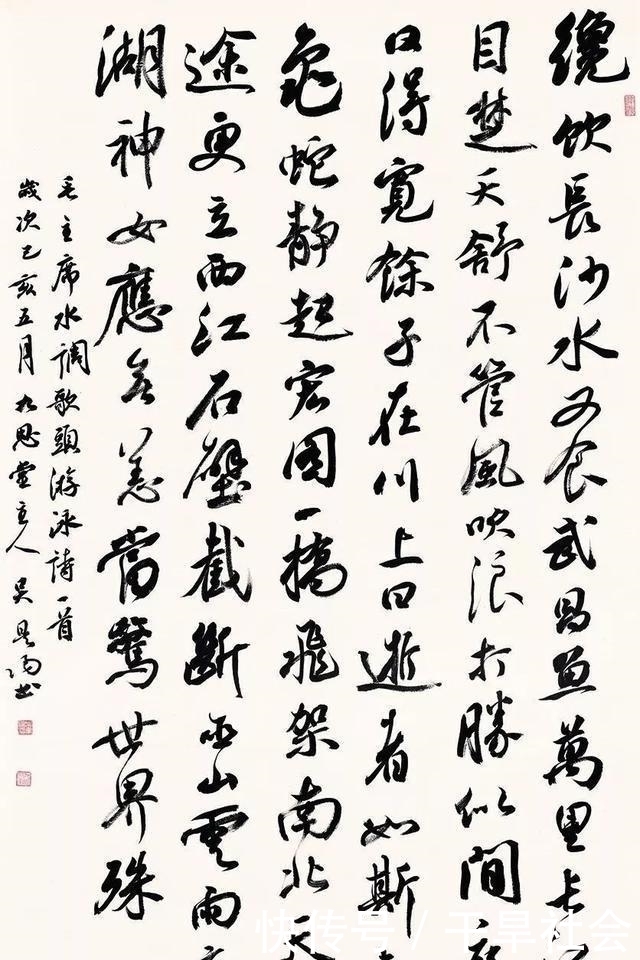 纔飲長沙水又食武昌魚萬里長
目楚天舒不管風吹浪打勝似間
日得寬餘子在川上曰逝者如斯
龜蛇靜起宏圖一橋飛架南北天
途更立西江石壁截斷巫山雲雨
湖神女應無恙當驚世界殊
毛主席水調歌頭游泳詩一首
歲次己亥五月九思堂主人吴书
快传号/干旱社会